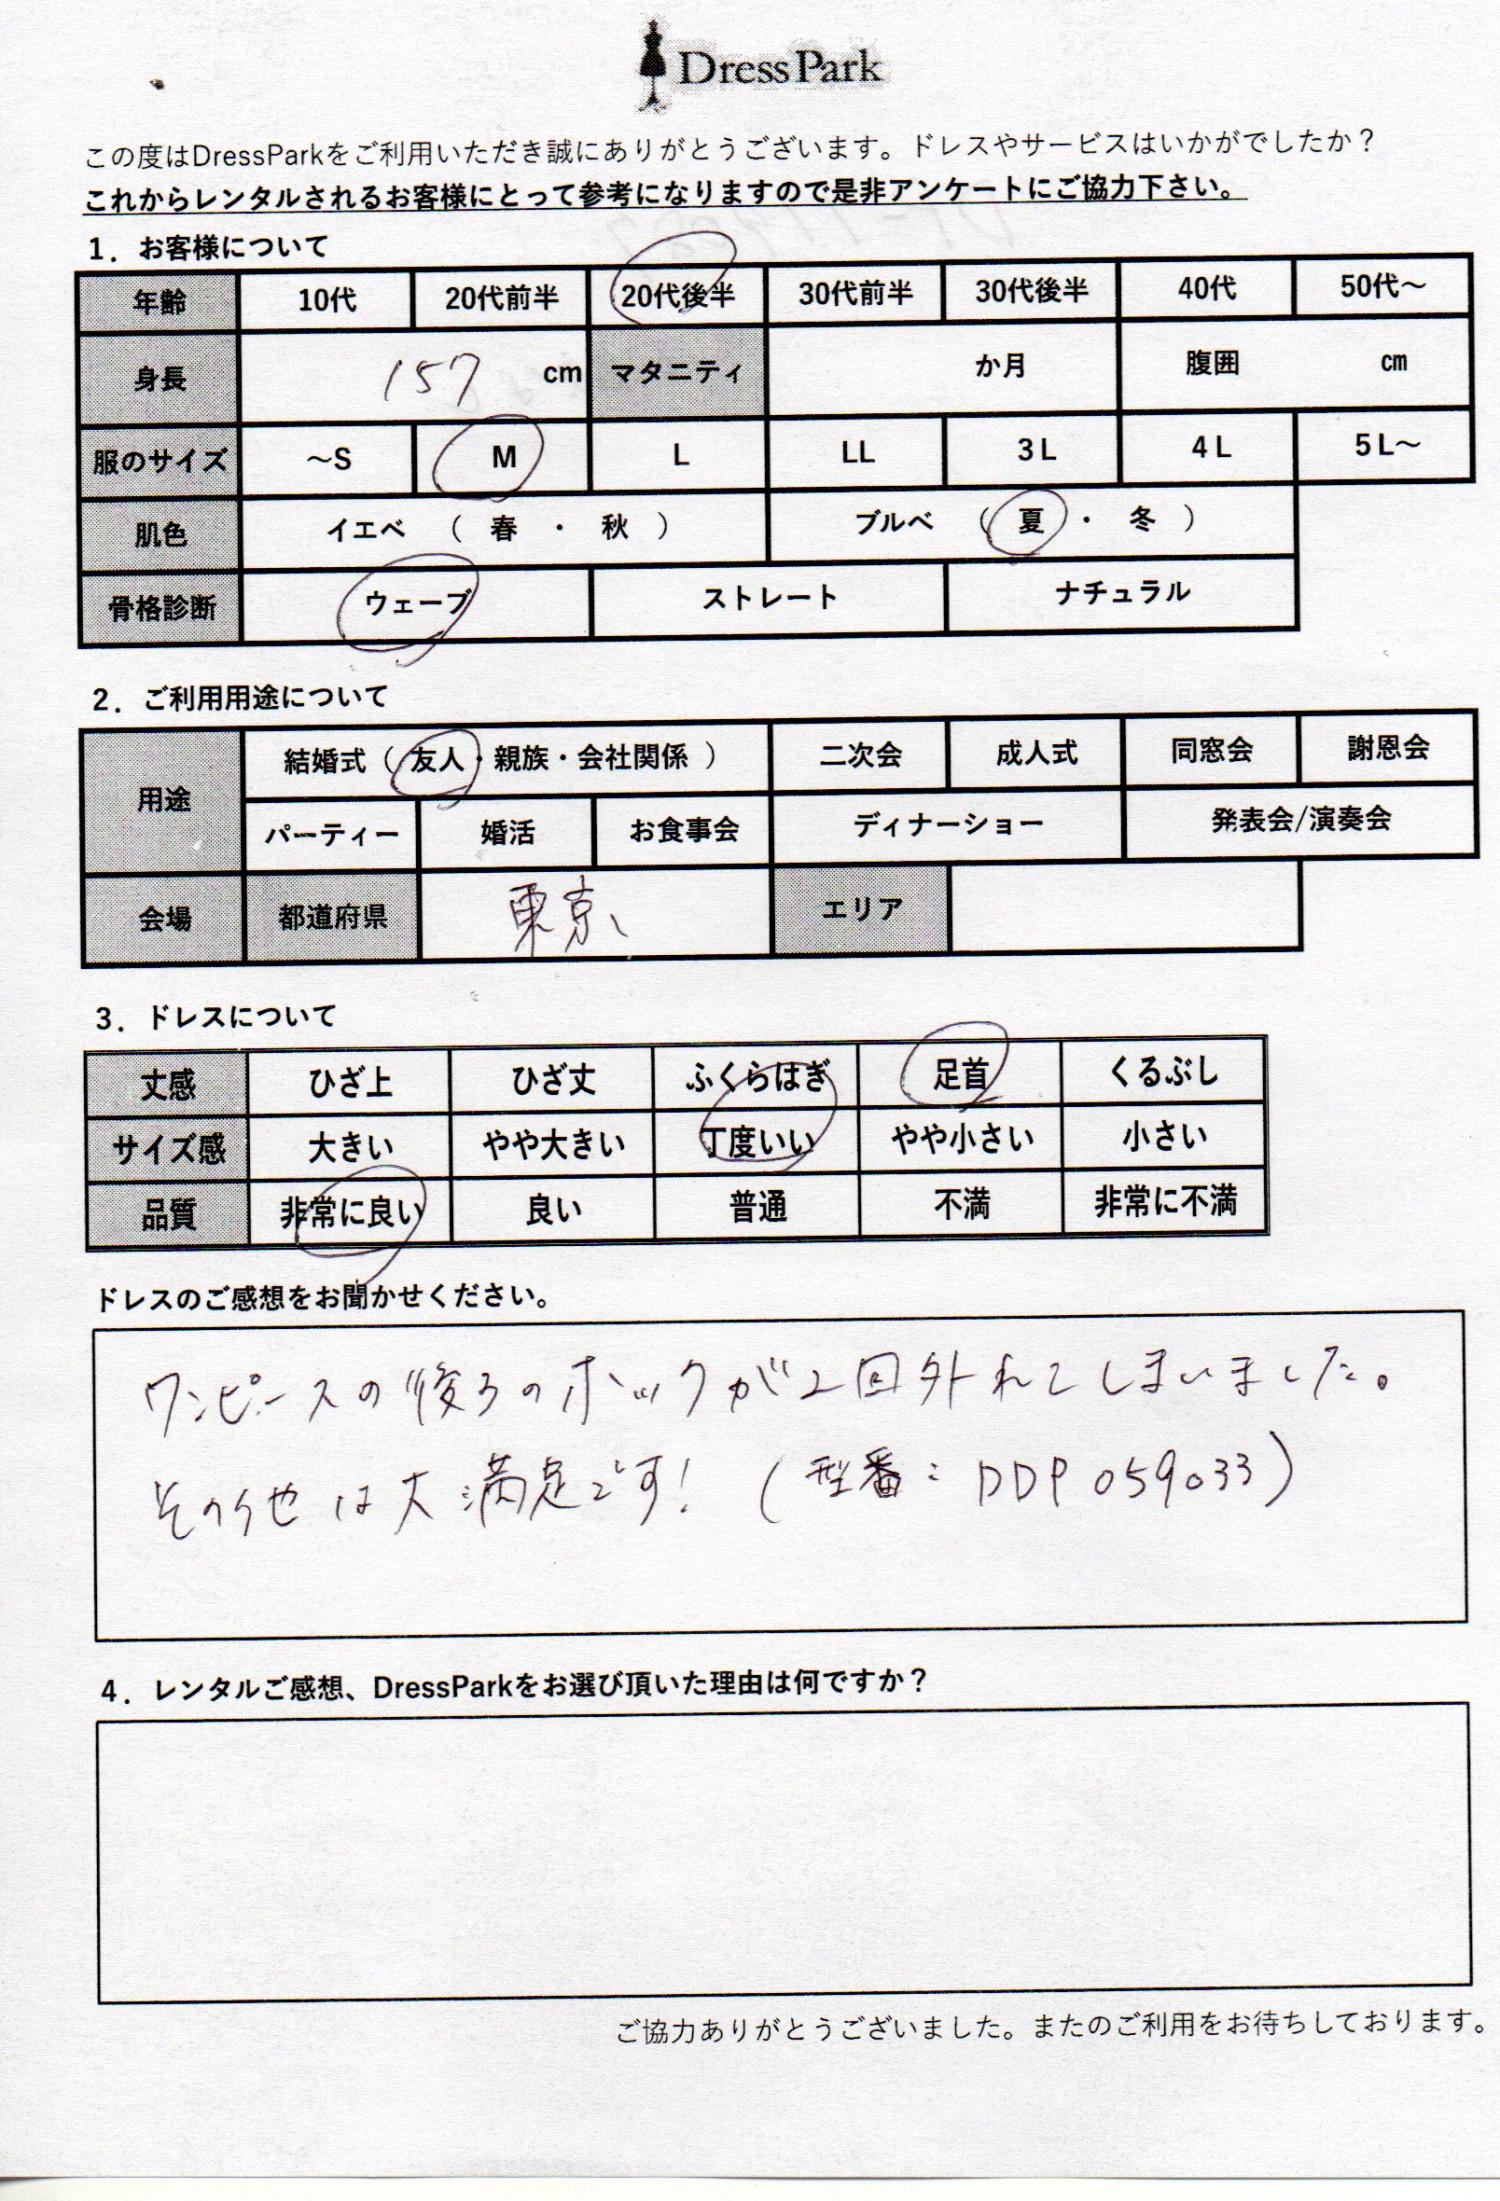 DressPark
この度はDressParkをご利用いただき誠にありがとうございます。ドレスやサービスはいかがでしたか？
これからレンタルされるお客様にとって参考になりますので是非アンケートにご協力下さい。
1．お客様について
年齢 10代 20代前半 20代後半 30代前半 30代後半 40代 50代～
身長 157 cm マタニティ か月 腹囲 cm
服のサイズ ～S M L LL 3L 4L 5L～
肌色 イエベ （ 春 ・ 秋 ） ブルベ （ 夏 ・ 冬 ）
骨格診断 ウェーブ ストレート ナチュラル
2．ご利用用途について
用途 結婚式（ 友人・親族・会社関係 ） 二次会 成人式 同窓会 謝恩会
パーティー 婚活 お食事会 ディナーショー 発表会/演奏会
会場 都道府県 東京 エリア
3．ドレスについて
丈感 ひざ上 ひざ丈 ふくらはぎ 足首 くるぶし
サイズ感 大きい やや大きい 丁度いい やや小さい 小さい
品質 非常に良い 良い 普通 不満 非常に不満
ドレスのご感想をお聞かせください。
ワンピースの後ろのホックが2回外れてしまいました。
その他は大満足です！（型番：DDP059033）
4．レンタルご感想、DressParkをお選び頂いた理由は何ですか？
ご協力ありがとうございました。またのご利用をお待ちしております。